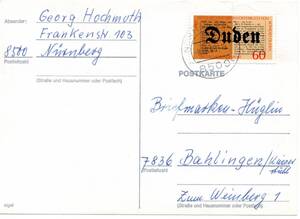 Absender:
Georg Hochmuth
Frankenstr 103
8500 Nürnberg
Postleitzahl
(Straße und Hausnummer oder Postfach)
Duden
60
8500
POSTKARTE
Briefmarken-Hüglin
7836 Bahlingen/Kaiser
stuhl
Postleitzahl
Zum Weinberg 1
(Straße und Hausnummer oder Postfach)